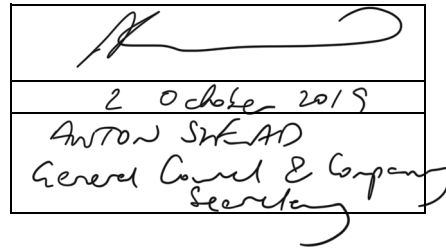 2 October 2019
ANTON SNEAD
General Counsel & Company
Secretary